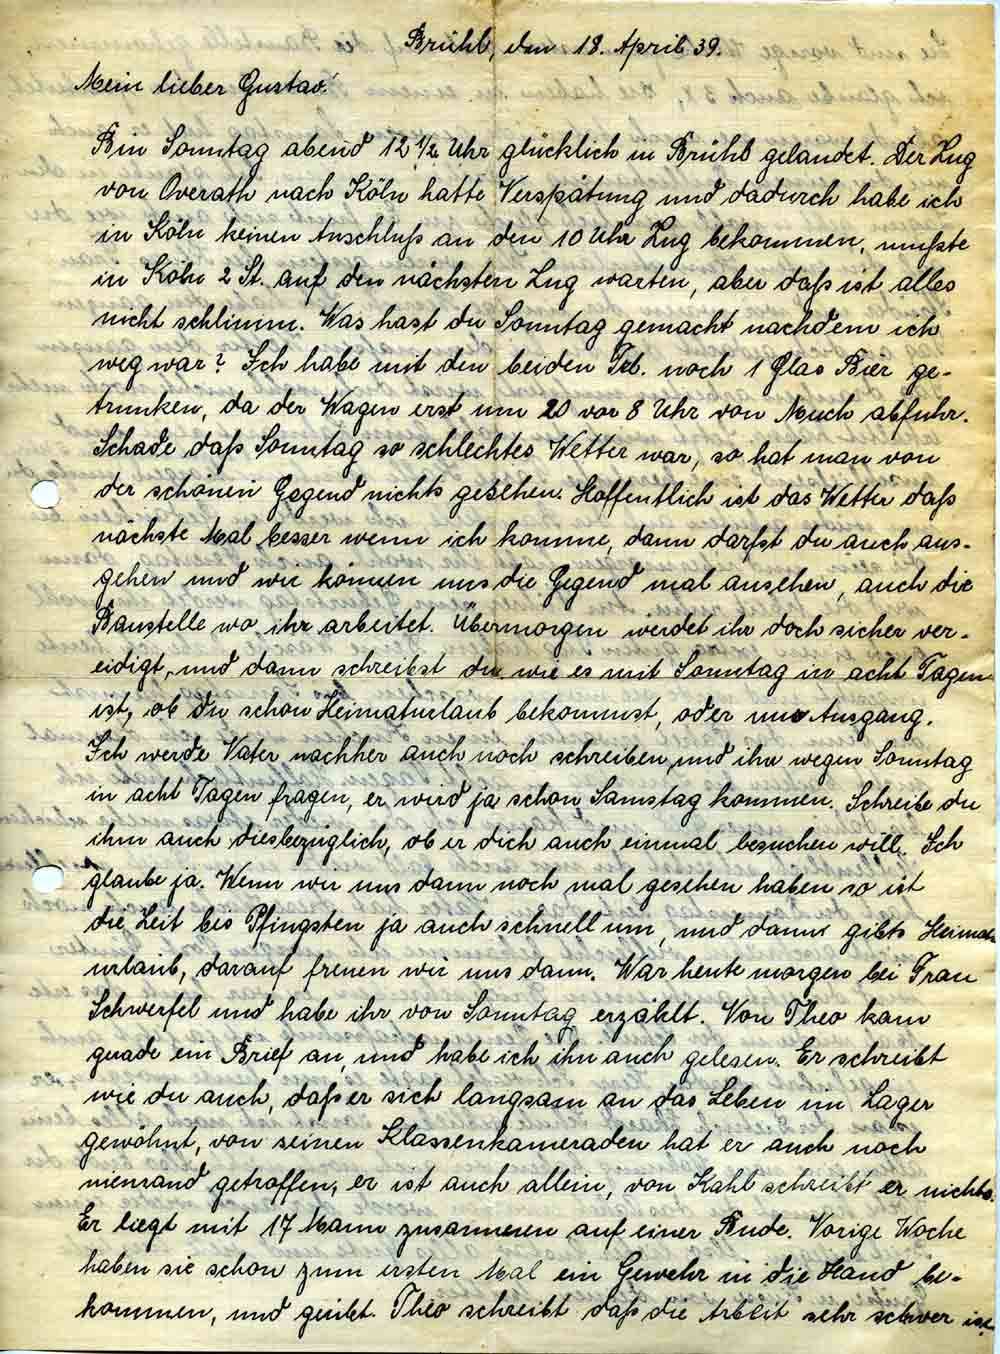 Brühl, den 18. April 39.
Mein lieber Gustav!
Bin Sonntag abend 12 ½ Uhr glücklich in Brühl gelandet. Der Zug
von Overath nach Köln hatte Verspätung und dadurch habe ich
in Köln keinen Anschluß an den 10 Uhr Zug bekommen, mußte
in Köln 2 St. auf den nächsten Zug warten, aber daß ist alles
nicht schlimm. Was hast du Sonntag gemacht nachdem ich
weg war? Ich habe mit den beiden noch 1 Glas Bier ge-
trunken, da der Wagen erst um 20 vor 8 Uhr von Much abfuhr.
Schade daß Sonntag so schlechtes Wetter war, so hat man von
der schönen Gegend nichts gesehen. Hoffentlich ist das Wetter daß
nächste Mal besser wenn ich komme, dann darfst du auch aus-
gehen und wir können uns die Gegend mal ansehen, auch die
Baustelle wo ihr arbeitet. Übermorgen werdet ihr doch sicher ver-
eidigt, und dann schreibst du wie es mit Sonntag in acht Tagen
ist, ob du schon Heimaturlaub bekommst, oder nur Ausgang.
Ich werde Vater nachher auch noch schreiben und ihn wegen Sonntag
in acht Tagen fragen, er wird ja schon Samstag kommen. Schreibe du
ihm auch diesbezüglich, ob er dich auch einmal besuchen will. Ich
glaube ja. Wenn wir uns dann noch mal gesehen haben so ist
die Zeit bis Pfingsten ja auch schnell um, und dann gibts Heimat
urlaub, darauf freuen wir uns dann. War heute morgen bei Frau
Schwerfel und habe ihr von Sonntag erzählt. Von Theo kam
gerade ein Brief an, und habe ich ihn auch gelesen. Er schreibt
wie du auch, daß er sich langsam an das Leben im Lager
gewöhnt, von seinen Klassenkameraden hat er auch noch
niemand getroffen, er ist auch allein, von Kahl schreibt er nichts.
Er liegt mit 17 Mann zusammen auf einer Bude. Vorige Woche
haben sie schon zum ersten Mal ein Gewehr in die Hand be-
kommen, und geübt. Theo schreibt daß die Arbeit sehr schwer ist,